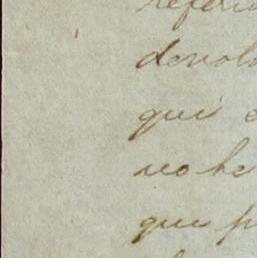 referi
devol
qui e
no he
que p